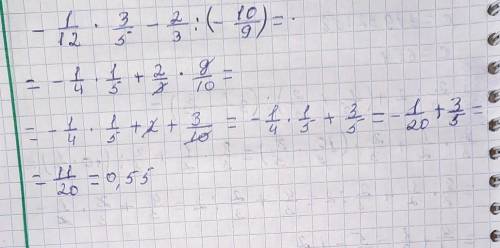 - 1/12 · 3/5 - 2/3 : (- 10/9) = ·
= - 1/4 · 1/5 + 2/3 · 9/10 =
= - 1/4 · 1/5 + 2 + 3/10 = - 1/4 · 1/5 + 3/5 = - 1/20 + 3/5 =
= 11/20 = 0,55